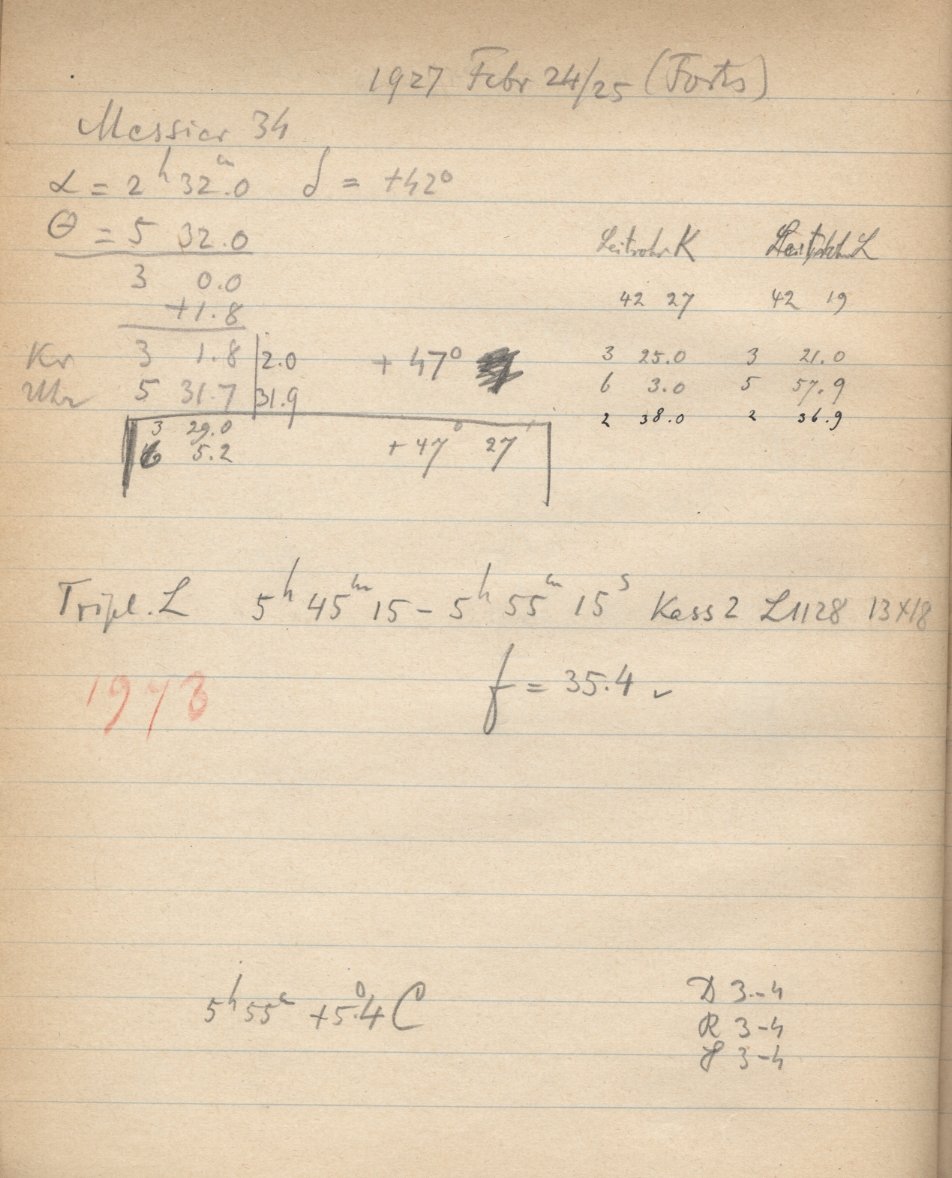 1927 Febr 24/25 (Forts)
Messier 34
α = 2ʰ 32ᵐ.0 δ = +42°
θ = 5 32.0
3 0.0
+1.8
Kr 3 1.8 | 2.0 + 47°
Uhr 5 31.7 | 31.9
3 29.0
6 5.2 + 47° 27'
Leitrohr K Leitrohr L
42 27 42 19
3 25.0 3 21.0
6 3.0 5 57.9
2 38.0 2 36.9
Tripl. L 5ʰ 45ᵐ 15 – 5ʰ 55ᵐ 15ˢ Kass 2 L1128 13X18
f = 35.4 ✓
1973
5ʰ 55ᵐ +5°.4 C
D 3–4
R 3–4
3–4